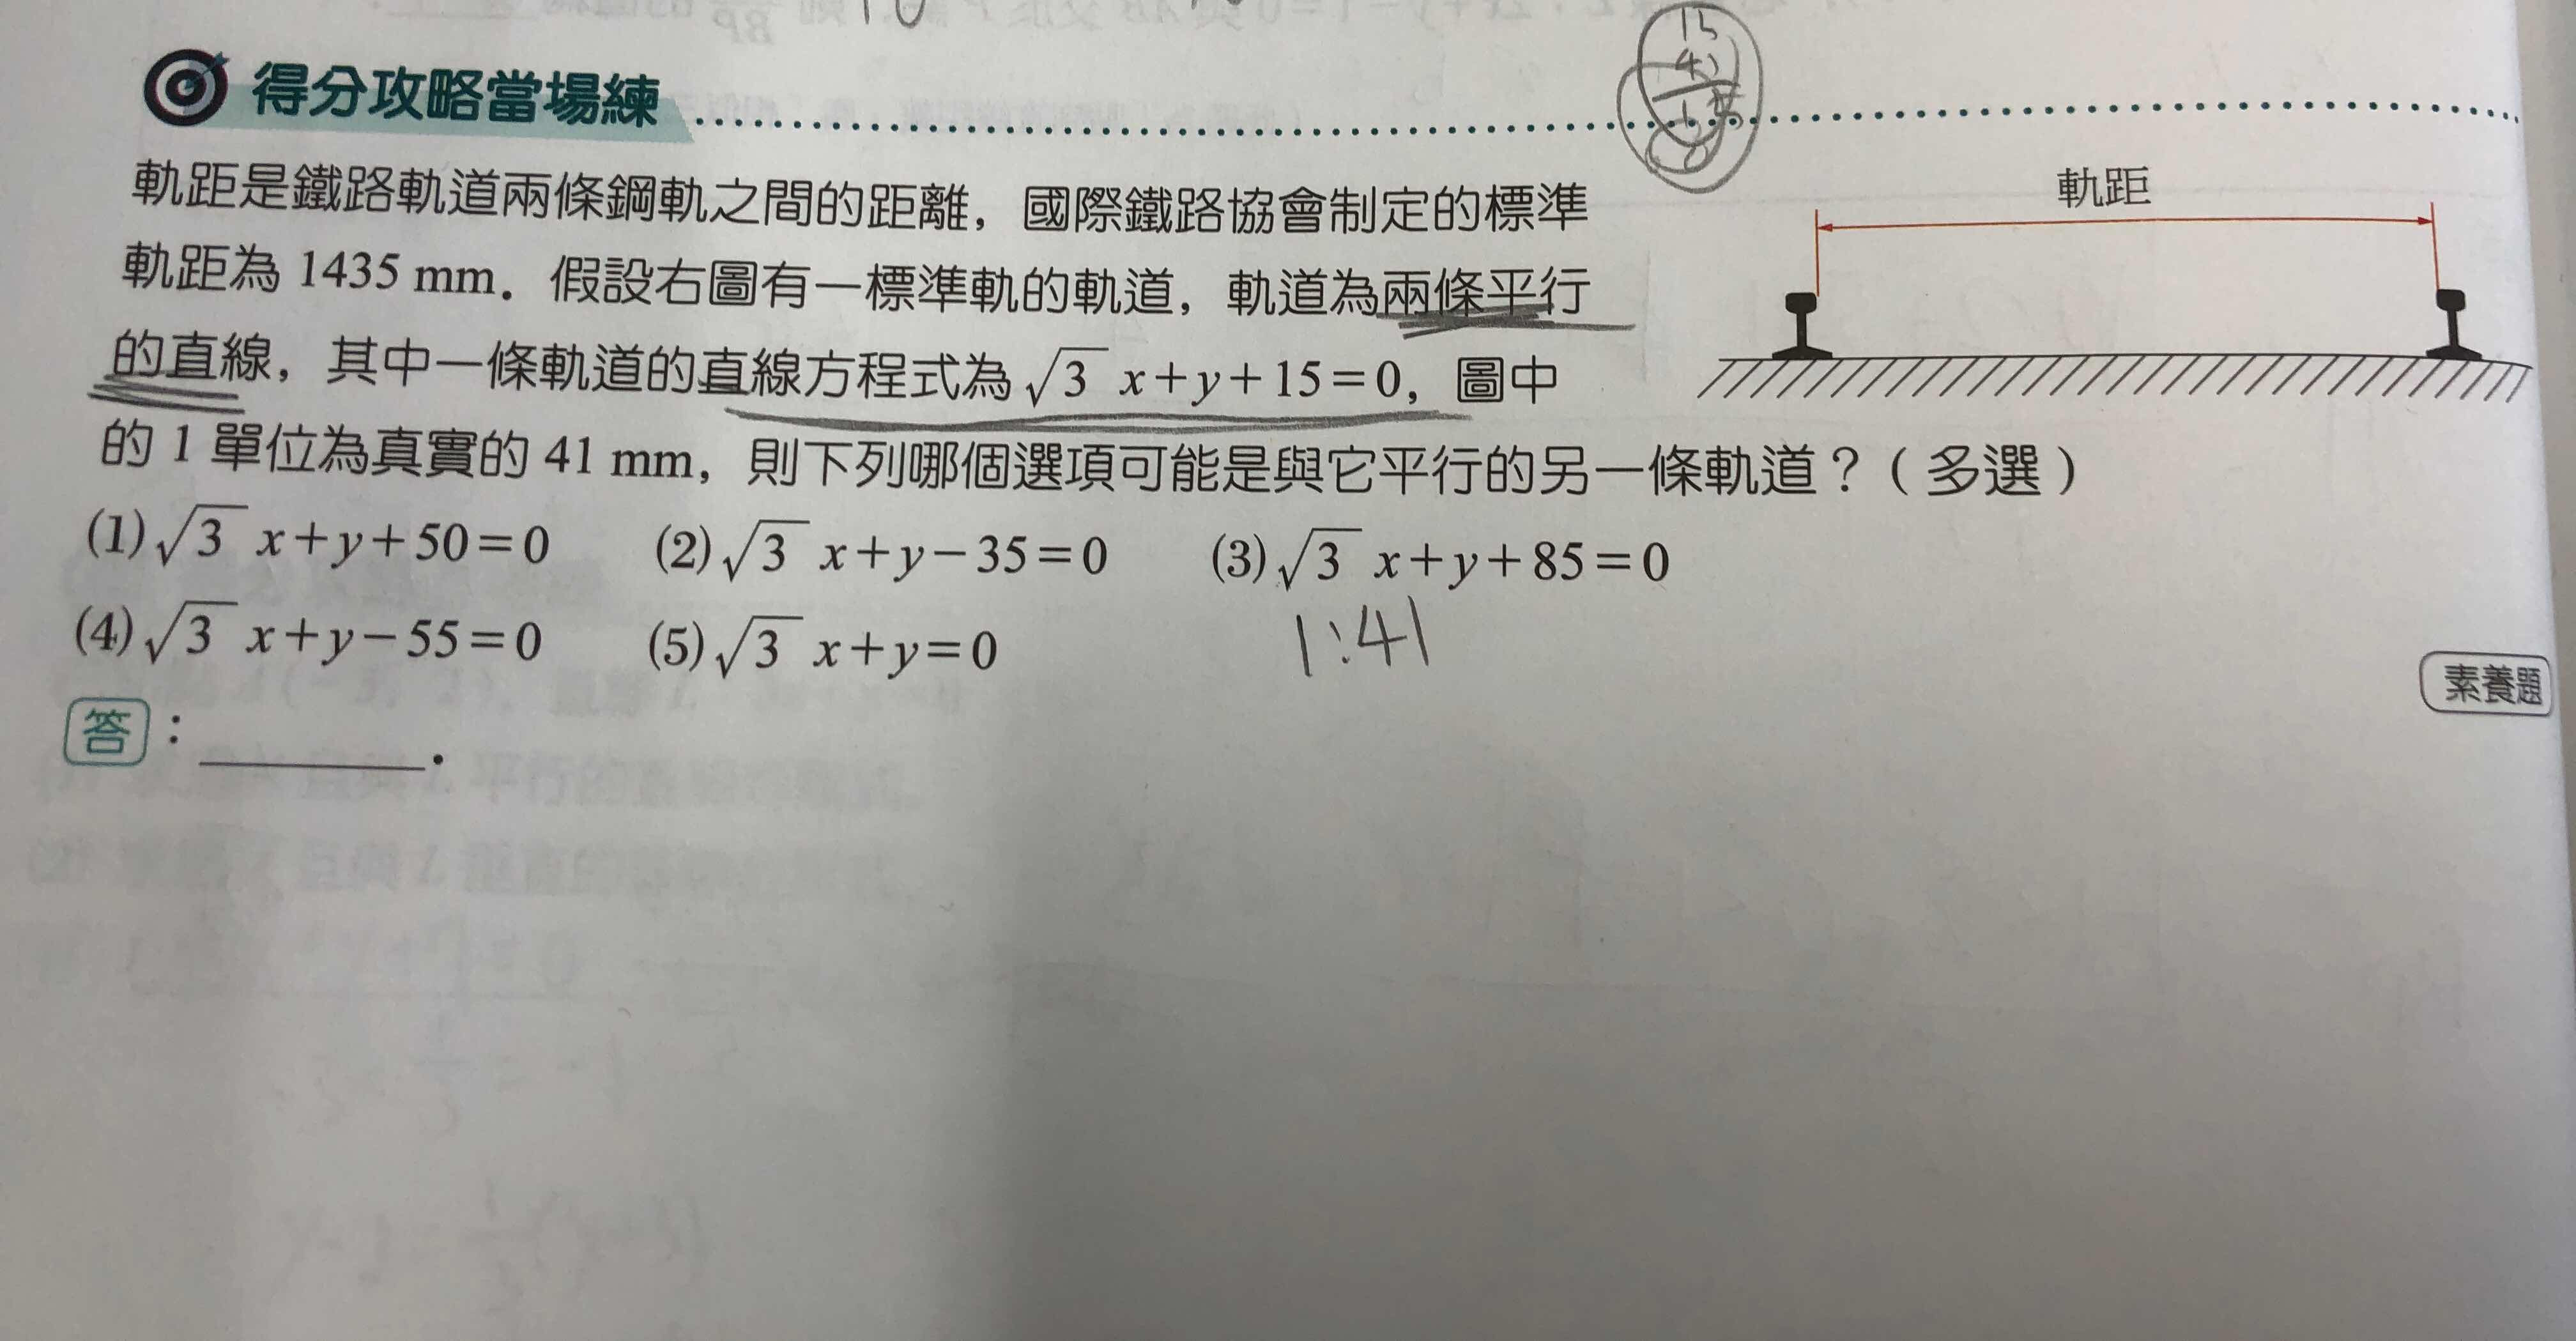 得分攻略當場練
軌距是鐵路軌道兩條鋼軌之間的距離，國際鐵路協會制定的標準
軌距為 1435 mm．假設右圖有一標準軌的軌道，軌道為兩條平行
的直線，其中一條軌道的直線方程式為 √3 x+y+15=0，圖中
的 1 單位為真實的 41 mm，則下列哪個選項可能是與它平行的另一條軌道？（多選）
軌距
(1) √3 x+y+50=0 (2) √3 x+y-35=0 (3) √3 x+y+85=0
(4) √3 x+y-55=0 (5) √3 x+y=0
1:41
素養題
答：